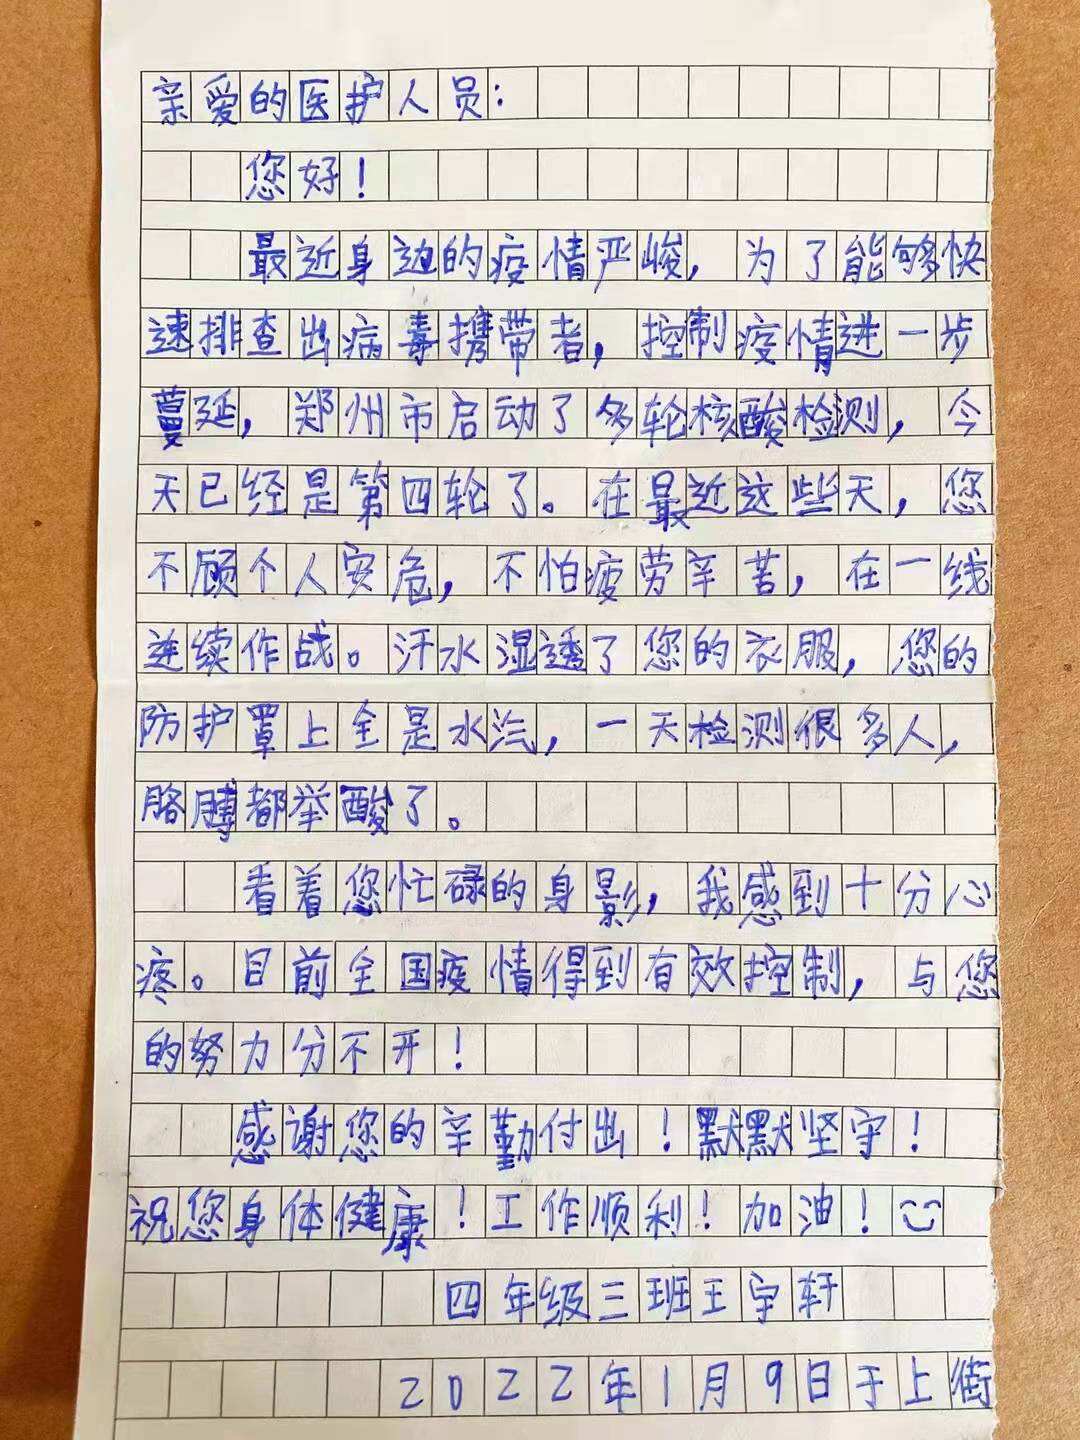 亲爱的医护人员：
您好！
最近身边的疫情严峻，为了能够快
速排查出病毒携带者，控制疫情进一步
蔓延，郑州市启动了多轮核酸检测，今
天已经是第四轮了。在最近这些天，您
不顾个人安危，不怕疲劳辛苦，在一线
连续作战。汗水湿透了您的衣服，您的
防护罩上全是水汽，一天检测很多人，
胳膊都举酸了。
看着您忙碌的身影，我感到十分心
疼。目前全国疫情得到有效控制，与您
的努力分不开！
感谢您的辛勤付出！默默坚守！
祝您身体健康！工作顺利！加油！
四年级三班王宇轩
2022年1月9日于上街